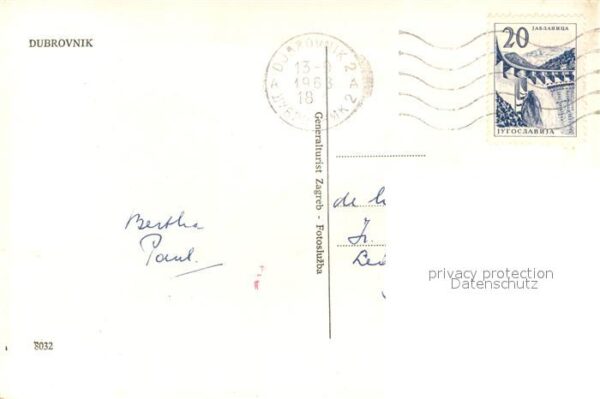 DUBROVNIK
DUBROVNIK 2
13
1963
18
20
ЈАБЛАНИЦА
ЈУГОСЛАВИЈА
Generalturist Zagreb - Fotoslužba
Bertha
Paul.
de
privacy protection
Datenschutz
8032